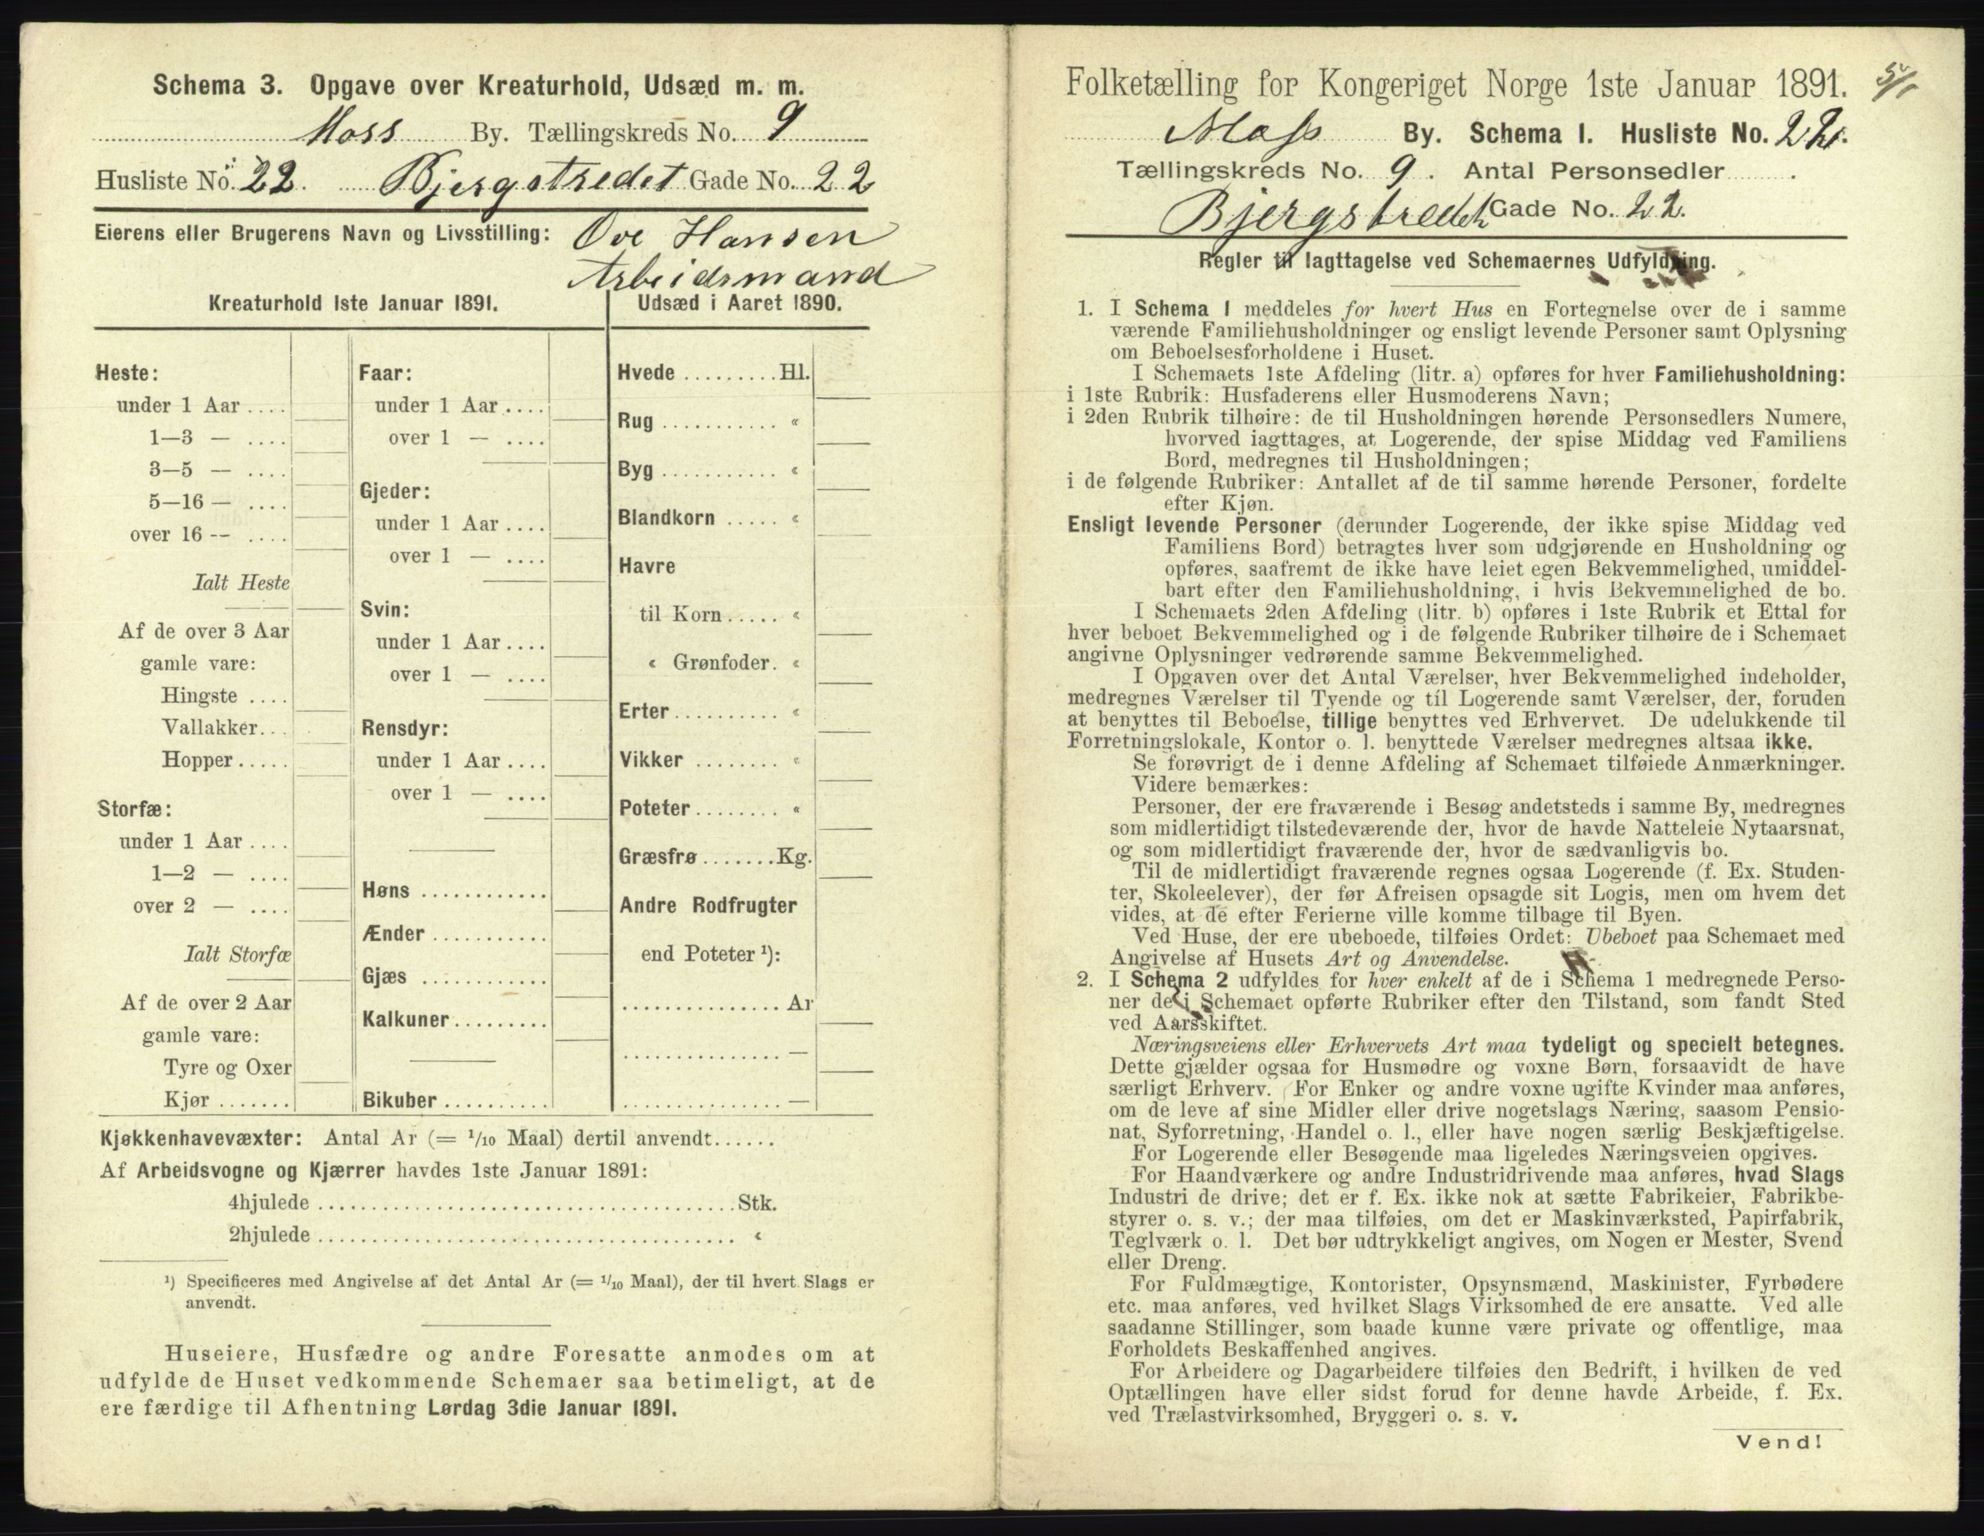 Schema 3. Opgave over Kreaturhold, Udsæd m. m.
Moss By. Tællingskreds No. 9
Husliste No. 22. Bjergstredet Gade No. 22
Eierens eller Brugerens Navn og Livsstilling: Ove Hansen
Arbeidsmand
Kreaturhold 1ste Januar 1891.
Heste:
under 1 Aar ....
1—3 — ....
3—5 — ....
5—16 — ....
over 16 -- ....
Ialt Heste
Af de over 3 Aar
gamle vare:
Hingste ....
Vallakker...
Hopper .....
Storfæ:
under 1 Aar ....
1—2 — ....
over 2 — ....
Ialt Storfæ
Af de over 2 Aar
gamle vare:
Tyre og Oxer
Kjør .......
Faar:
under 1 Aar ....
over 1 — ....
Gjeder:
under 1 Aar ....
over 1 — ....
Svin:
under 1 Aar ....
over 1 — ....
Rensdyr:
under 1 Aar ....
over 1 — ....
Høns ............
Ænder ...........
Gjæs ............
Kalkuner.........
Bikuber ..........
Udsæd i Aaret 1890.
Hvede .........Hl.
Rug ........... «
Byg ........... «
Blandkorn ..... «
Havre
til Korn..... «
« Grønfoder. «
Erter.......... «
Vikker ......... «
Poteter........ «
Græsfrø.......Kg.
Andre Rodfrugter
end Poteter ¹):
...............Ar
...............—
...............—
Kjøkkenhavevæxter: Antal Ar (= 1/10 Maal) dertil anvendt......
Af Arbeidsvogne og Kjærrer havdes 1ste Januar 1891:
4hjulede ........................................Stk.
2hjulede ........................................ «
¹) Specificeres med Angivelse af det Antal Ar (= 1/10 Maal), der til hvert Slags er
anvendt.
Huseiere, Husfædre og andre Foresatte anmodes om at
udfylde de Huset vedkommende Schemaer saa betimeligt, at de
ere færdige til Afhentning Lørdag 3die Januar 1891.
Folketælling for Kongeriget Norge 1ste Januar 1891. 5/1
Moss By. Schema 1. Husliste No. 22.
Tællingskreds No. 9. Antal Personsedler .
Bjergstredet Gade No. 22.
Regler til Iagttagelse ved Schemaernes Udfyldning.
1. I Schema 1 meddeles for hvert Hus en Fortegnelse over de i samme
værende Familiehusholdninger og ensligt levende Personer samt Oplysning
om Beboelsesforholdene i Huset.
I Schemaets 1ste Afdeling (litr. a) opføres for hver Familiehusholdning:
i 1ste Rubrik: Husfaderens eller Husmoderens Navn;
i 2den Rubrik tilhøire: de til Husholdningen hørende Personsedlers Numere,
hvorved iagttages, at Logerende, der spise Middag ved Familiens
Bord, medregnes til Husholdningen;
i de følgende Rubriker: Antallet af de til samme hørende Personer, fordelte
efter Kjøn.
Ensligt levende Personer (derunder Logerende, der ikke spise Middag ved
Familiens Bord) betragtes hver som udgjørende en Husholdning og
opføres, saafremt de ikke have leiet egen Bekvemmelighed, umiddel-
bart efter den Familiehusholdning, i hvis Bekvemmelighed de bo.
I Schemaets 2den Afdeling (litr. b) opføres i 1ste Rubrik et Ettal for
hver beboet Bekvemmelighed og i de følgende Rubriker tilhøire de i Schemaet
angivne Oplysninger vedrørende samme Bekvemmelighed.
I Opgaven over det Antal Værelser, hver Bekvemmelighed indeholder,
medregnes Værelser til Tyende og til Logerende samt Værelser, der, foruden
at benyttes til Beboelse, tillige benyttes ved Erhvervet. De udelukkende til
Forretningslokale, Kontor o. l. benyttede Værelser medregnes altsaa ikke.
Se forøvrigt de i denne Afdeling af Schemaet tilføiede Anmærkninger.
Videre bemærkes:
Personer, der ere fraværende i Besøg andetsteds i samme By, medregnes
som midlertidigt tilstedeværende der, hvor de havde Natteleie Nytaarsnat,
og som midlertidigt fraværende der, hvor de sædvanligvis bo.
Til de midlertidigt fraværende regnes ogsaa Logerende (f. Ex. Studen-
ter, Skoleelever), der før Afreisen opsagde sit Logis, men om hvem det
vides, at de efter Ferierne ville komme tilbage til Byen.
Ved Huse, der ere ubeboede, tilføies Ordet: Ubeboet paa Schemaet med
Angivelse af Husets Art og Anvendelse.
2. I Schema 2 udfyldes for hver enkelt af de i Schema 1 medregnede Perso-
ner de i Schemaet opførte Rubriker efter den Tilstand, som fandt Sted
ved Aarsskiftet.
Næringsveiens eller Erhvervets Art maa tydeligt og specielt betegnes.
Dette gjælder ogsaa for Husmødre og voxne Børn, forsaavidt de have
særligt Erhverv. For Enker og andre voxne ugifte Kvinder maa anføres,
om de leve af sine Midler eller drive nogetslags Næring, saasom Pensio-
nat, Syforretning, Handel o. l., eller have nogen særlig Beskjæftigelse.
For Logerende eller Besøgende maa ligeledes Næringsveien opgives.
For Haandværkere og andre Industridrivende maa anføres, hvad Slags
Industri de drive; det er f. Ex. ikke nok at sætte Fabrikeier, Fabrikbe-
styrer o. s. v.; der maa tilføies, om det er Maskinværksted, Papirfabrik,
Teglværk o. l. Det bør udtrykkeligt angives, om Nogen er Mester, Svend
eller Dreng.
For Fuldmægtige, Kontorister, Opsynsmænd, Maskinister, Fyrbødere
etc. maa anføres, ved hvilket Slags Virksomhed de ere ansatte. Ved alle
saadanne Stillinger, som baade kunne være private og offentlige, maa
Forholdets Beskaffenhed angives.
For Arbeidere og Dagarbeidere tilføies den Bedrift, i hvilken de ved
Optællingen have eller sidst forud for denne havde Arbeide, f. Ex.
ved Trælastvirksomhed, Bryggeri o. s. v.
Vend!